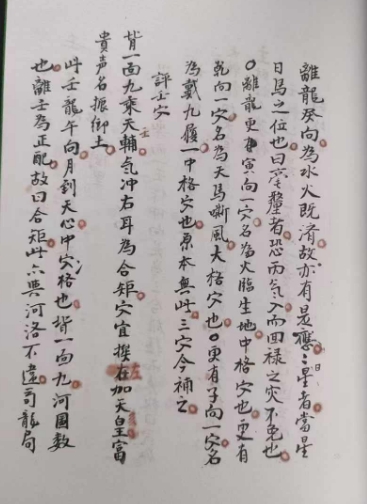 離龍癸向為水火既濟故亦有是應星者當星
日馬之位也曰空釐者恐丙氣入而回禄之灾不免也
離龍更有寅向一穴名為火臨生地中格穴也更有
乾向一穴名為天馬嘶風大格穴也更有子向一穴名
為戴九履一中格穴也原本無此三穴今補之
評壬穴
背一面九乘天輔壬氣冲右耳為合矩穴宜挨左加天皇富
貴声名振鄉土
此壬龍午向月到天心中穴格也背一向九河圖數
也離壬為正配故曰合矩此六與河洛不違司龍局